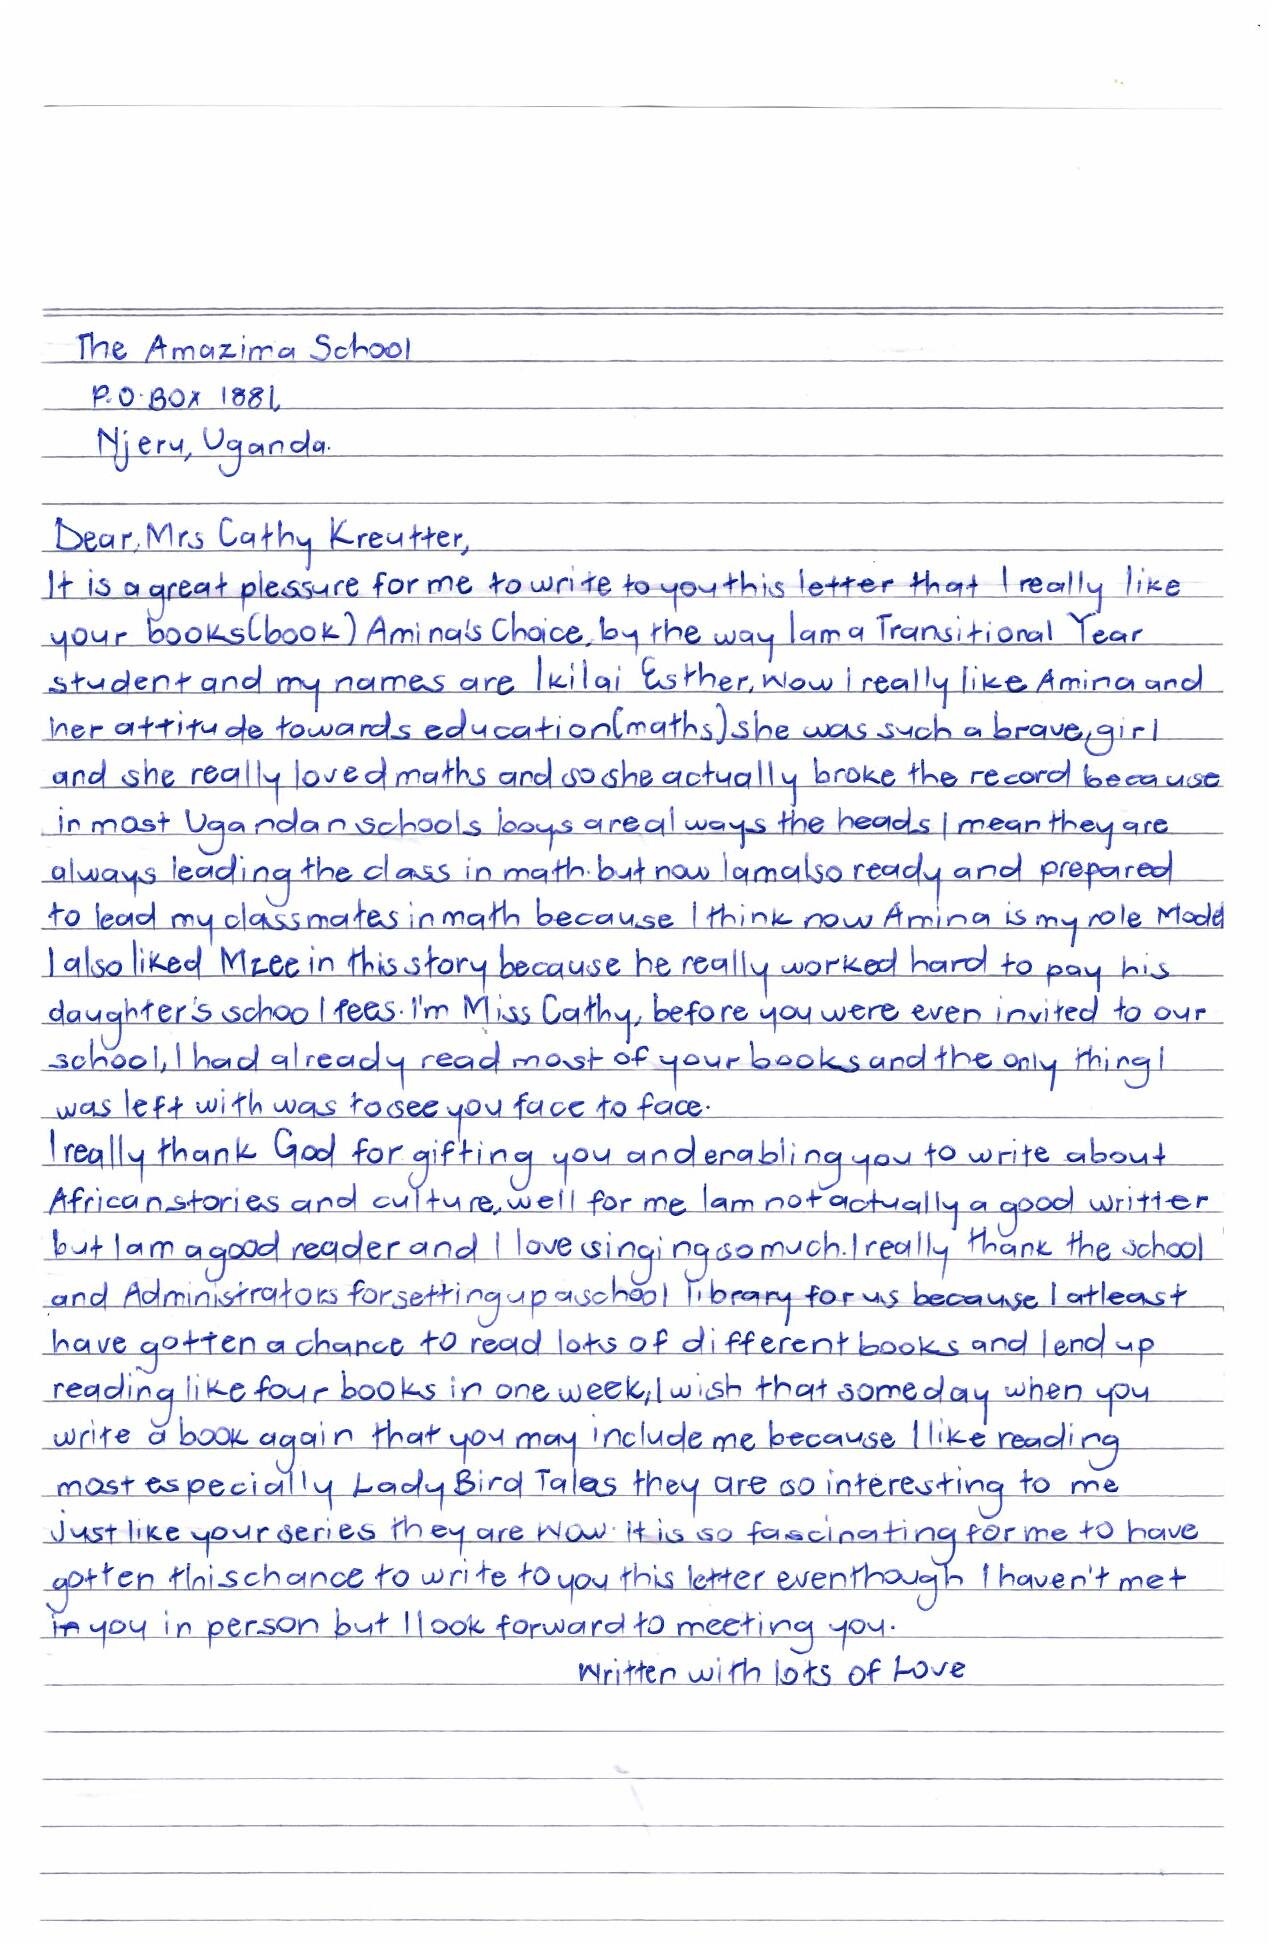 The Amazima School
P.O.BOX 1881,
Njeru, Uganda.
Dear, Mrs Cathy Kreutter,
It is a great plessure for me to write to you this letter that I really like
your books(book) Amina's Choice, by the way I am a Transitional Year
student and my names are Ikilai Esther, Wow i really like Amina and
her attitude towards education(maths) she was such a brave, girl
and she really loved maths and so she actually broke the record because
in most Ugandan schools boys are always the heads I mean they are
always leading the class in math. but now I am also ready and prepared
to lead my classmates in math because I think now Amina is my role Model
I also liked Mzee in this story because he really worked hard to pay his
daughter's school fees. I'm Miss Cathy, before you were even invited to our
school, I had already read most of your books and the only thing I
was left with was to see you face to face.
I really thank God for gifting you and enabling you to write about
African stories and culture, well for me I am not actually a good writter
but I am a good reader and I love singing so much. I really thank the school
and Administrators for setting up a school library for us because I atleast
have gotten a chance to read lots of different books and I end up
reading like four books in one week, I wish that someday when you
write a book again that you may include me because I like reading
most especially Lady Bird Tales they are so interesting to me
just like your series they are Wow. it is so fascinating for me to have
gotten this chance to write to you this letter eventhough I haven't met
in you in person but I look forward to meeting you.
Written with lots of Love